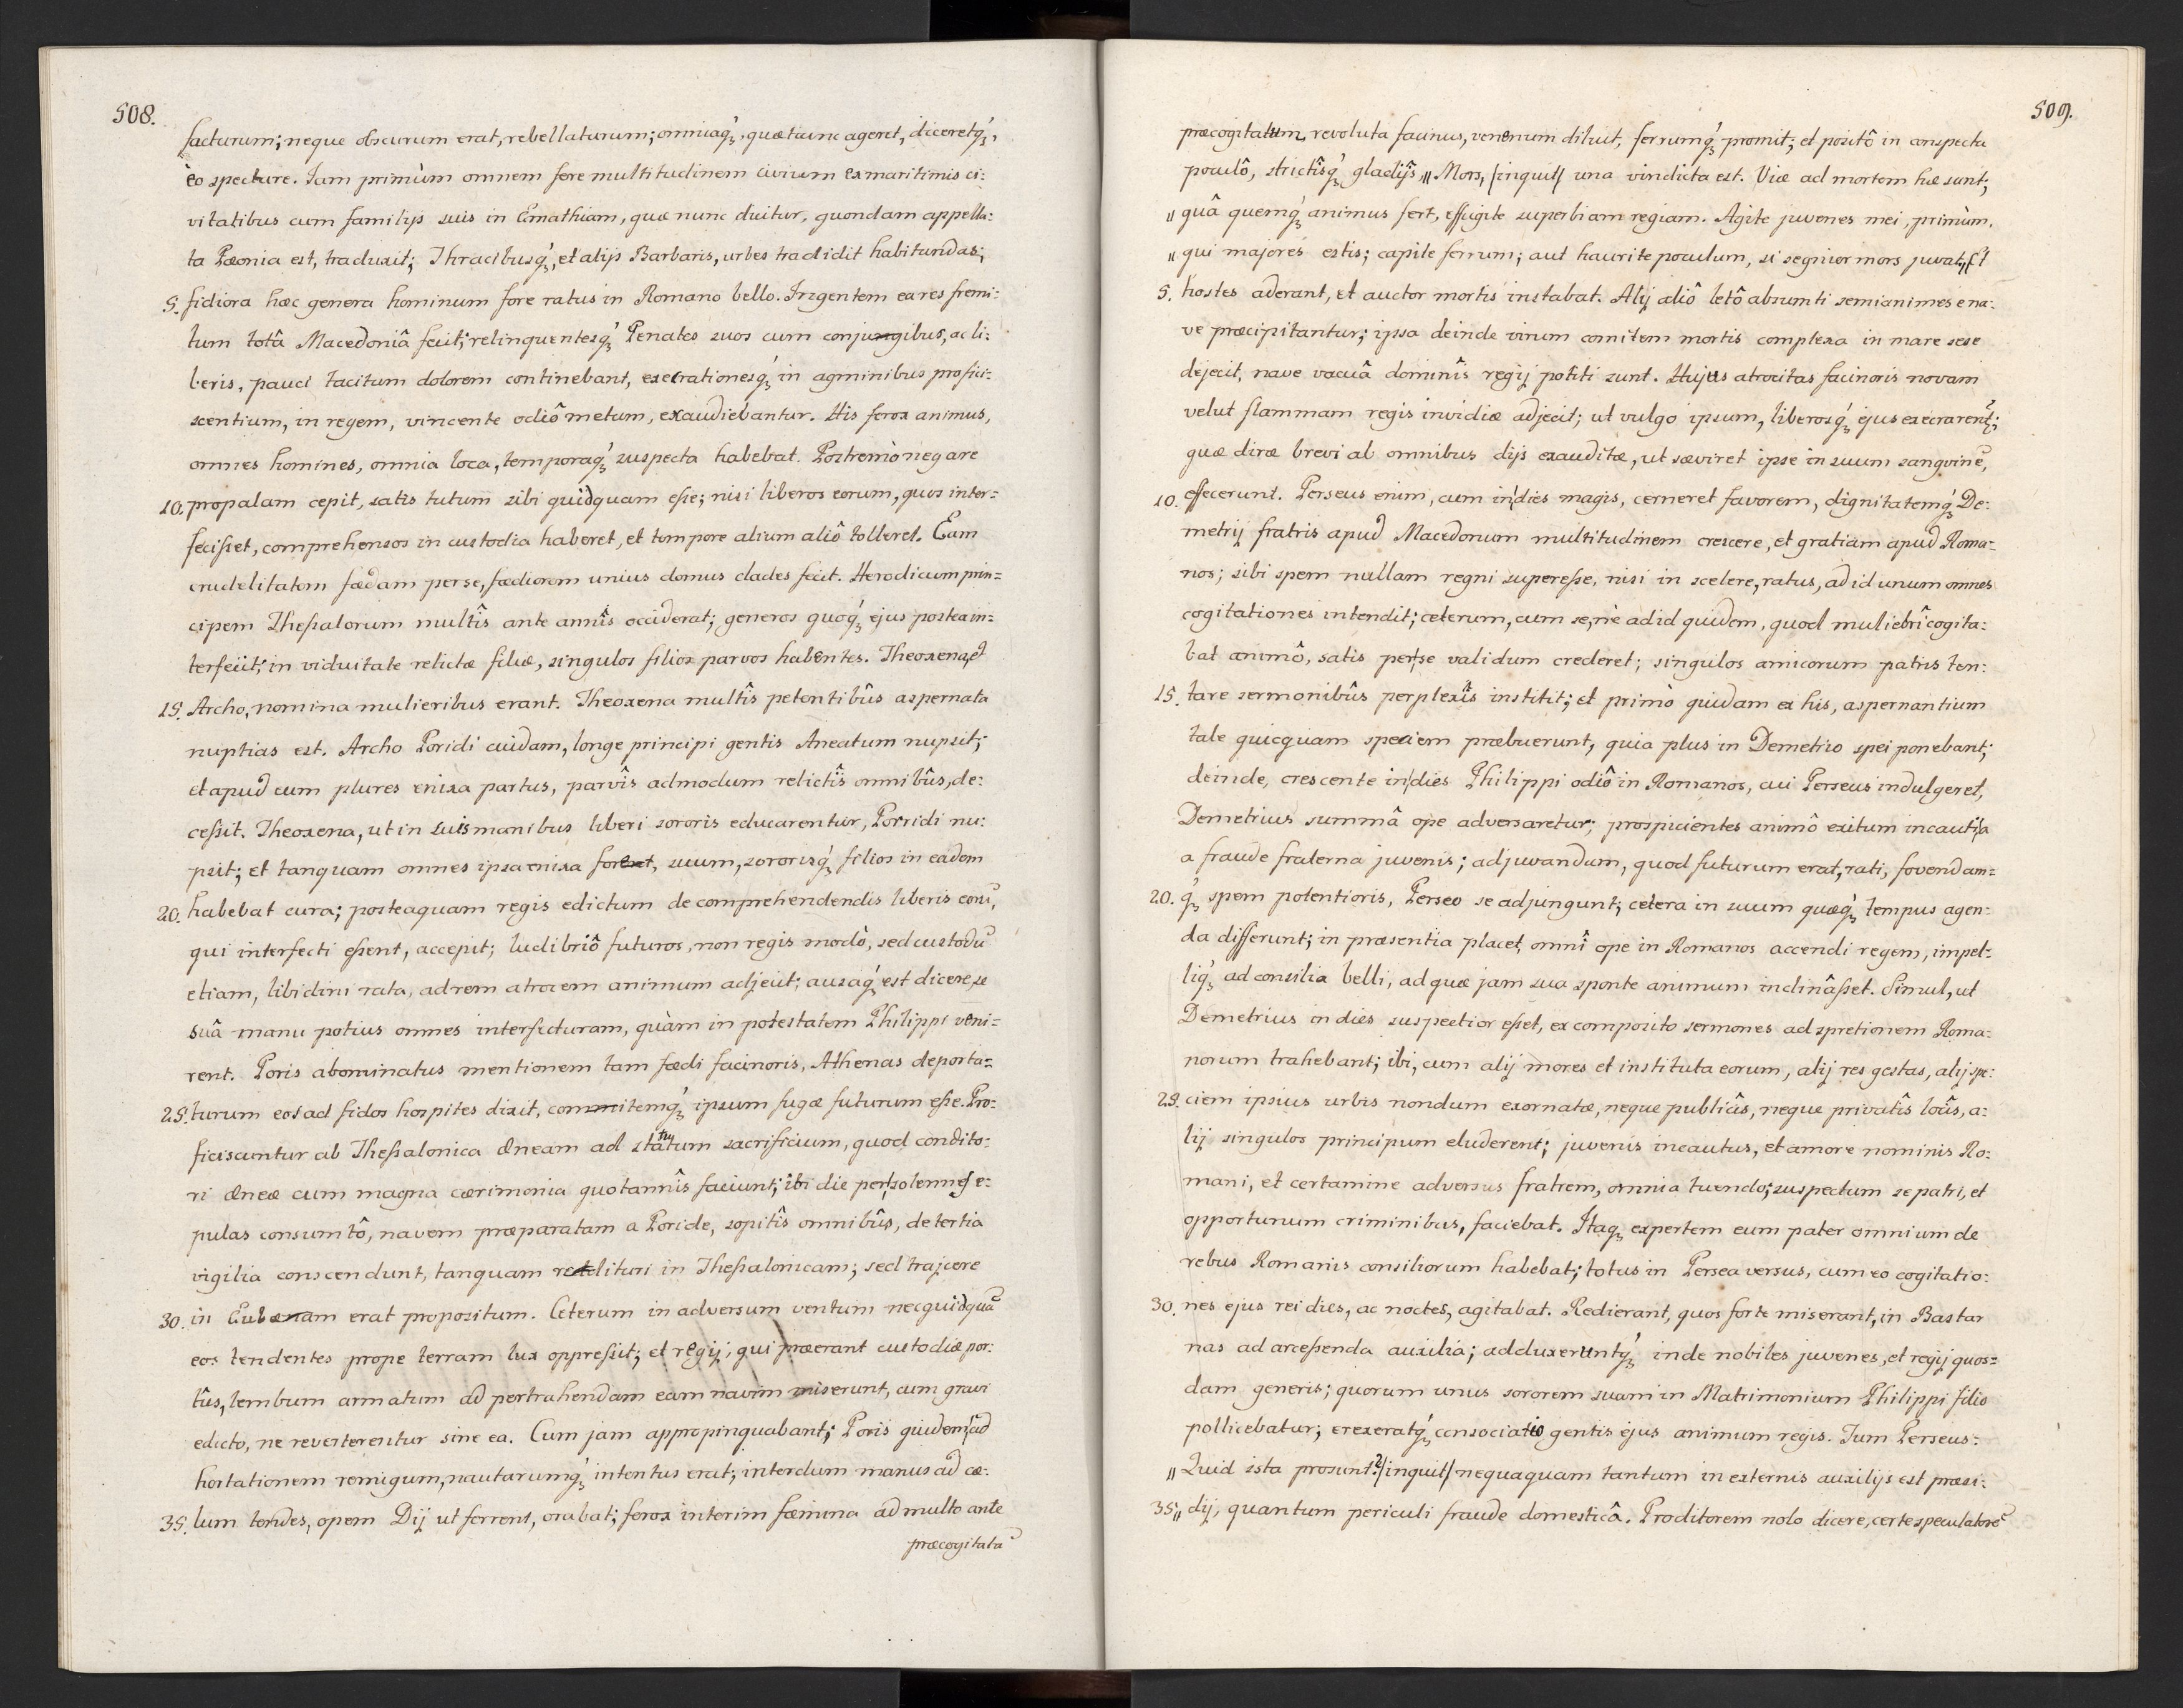 508.
facturum; neque obscurum erat, rebellaturum; omniaq́ʒ, quæ tunc ageret, diceretq́ʒ,
eò spectare. Iam primùm omnem fere multitudinem civium ex maritimis ci:
vitatibus cum familijs suis in Emathiam, quæ nunc dicitur, quondam appella:
ta Pæonia est, traduxit; Thracibusq́ʒ, et alijs Barbaris, urbes tradidit habitandas;
5. fidiora hæc genera hominum fore ratus in Romano bello. Ingentem ea res fremi:
tum totâ Macedoniâ fecit; relinquentesq́ʒ Penates suos cum conjugibus, ac li:
beris, pauci tacitum dolorem continebant, execrationesq́ʒ in agminibus profici:
scentium, in regem, vincente odiô metum, exaudiebantur. His ferox animus,
omnes homines, omnia loca, temporaq́ʒ suspecta habebat. Postremò negare
10. propalam cepit, satis tutum sibi quidquam esse; nisi liberos eorum, quos inter:
fecisset, comprehensos in custodia haberet, et tempore alium aliô tolleret. Eam
crudelitatem fædam per se, fædiorem unius domus clades fecit. Herodicum prin=
cipem Thessalorum multîs ante annîs occiderat; generos quoq́ʒ ejus postea in=
terfecit; in viduitate relictæ filiæ, singulos filios parvos habentes. Theoxena, et
15. Archo, nomina mulieribus erant. Theoxena multîs petentibûs aspernata
nuptias est. Archo Poridi cuidam, longe principi gentis Aneatum nupsit;
et apud eum plures enixa partus, parvîs admodum relictîs omnibûs, de:
cessit. Theoxena, ut in suis manibus liberi sororis educarentur, Poridi nu:
psit; et tanquam omnes ipsa enixa foret, suum, sororisq́ʒ filios in eadem
20. habebat cura; posteaquam regis edictum de comprehendendis liberis eorū,
qui interfecti essent, accepit; ludibriô futuros, non regis modò, sed custodū
etiam, libidini rata, ad rem atrocem animum adjecit; ausaq́ʒ est dicere, se
suâ manu potius omnes interfecturam, quàm in potestatem Philippi veni=
rent. Poris abominatus mentionem tam fædi facinoris, Athenas deporta=
25. turum eos ad fidos hospites dixit, comitemq́ʒ ipsum fugæ futurum esse. Pro:
ficiscuntur ab Thessalonica Æneam ad statum sacrificium, quod condito:
ri Æneæ cum magna cærimonia quotannîs faciunt; ibi die per solennes e:
pulas consumtô, navem præparatam a Poride, sopitîs omnibûs, de tertia
vigilia conscendunt, tanquam redituri in Thessalonicam; sed trajcere
30. in Eubæam erat propositum. Ceterum in adversum ventum necquidquā
eos tendentes prope terram lux oppressit; et regij, qui præerant custodiæ por:
tûs, lembum armatum ad pertrahendam eam navim miserunt, cum gravi
edicto, ne reverterentur sine ea. Cum jam appropinquabant; Poris quidem, ad
hortationem remigum, nautarumq́ʒ intentus erat; interdum manus ad cæ:
35. lum tendes, opem Dij ut ferrent, orabat; ferox interim fæmina ad multo ante
præcogitatū
509.
præcogitatum revoluta facinus, venenum diluit, ferrumq́ʒ promit; et positô in conspectu
poculô, strictîsq́ʒ gladijs, „ Mors, /inquit/ una vindicta est. Viæ ad mortem hæ sunt;
„ quâ quemq́ʒ animus fert, effugite superbiam regiam. Agite juvenes mei, primùm,
„ qui majores estis; capite ferrum; aut haurite poculum, si segnior mors juvat„ Et
5. hostes aderant, et auctor mortis instabat. Alij aliô letô absumti semianimes e na:
ve præcipitantur; ipsa deinde virum comitem mortis complexa in mare sese
dejecit, nave vacuâ dominîs regij potiti sunt. Hujus atrocitas facinoris novam
velut flammam regis invidiæ adjecit; ut vulgo ipsum, liberosq́ʒ ejus execrarent̉;
quæ diræ brevi ab omnibus dijs exauditæ, ut sæviret ipse in suum sangvinē,
10. effecerunt. Perseus enim, cum in dies magis, cerneret favorem, dignitatemq́ʒ De:
metrij fratris apud Macedonum multitudinem crescere, et gratiam apud Roma=
nos; sibi spem nullam regni superesse, nisi in scelere, ratus, ad id unum omnes
cogitationes intendit; ceterum, cum se, nè ad id quidem, quod muliebrî cogita:
bat animô, satis per se validum crederet; singulos amicorum patris ten:
15. tare sermonibûs perplexîs institit; et primò quidam ex his, aspernantium
tale quicquam speciem præbuerunt, quia plus in Demetrio spei ponebant;
deinde, crescente in dies Philippi odiô in Romanos, cui Perseus indulgeret,
Demetrius summâ ope adversaretur; prospicientes animô exitum incauti a
a fraude fraterna juvenis; adjuvandum, quod futurum erat, rati, fovendam=
20. q́ʒ spem potentioris, Perseo se adjungunt; cetera in suum quæq́ʒ tempus agen:
da differunt; in præsentia placet, omnî ope in Romanos accendi regem, impel:
liq́ʒ ad consilia belli, ad quæ jam sua sponte animum inclinâsset. Simul, ut
Demetrius in dies suspectior esset, ex composito sermones ad spretionem Roma:
norum trahebant; ibi, cum alij mores et instituta eorum, alij res gestas, alij spe:
25. ciem ipsius urbis nondum exornatæ, neque publicîs, neque privatîs locîs, a:
lij singulos principum eluderent; juvenis incautus, et amore nominis Ro:
mani, et certamine adversus fratrem, omnia tuendo; suspectum se patri, et
opportunum criminibus, faciebat. Itaqʒ expertem eum pater omnium de
rebus Romanis consiliorum habebat; totus in Persea versus, cum eo cogitatio:
30. nes ejus rei dies, ac noctes, agitabat. Redierant, quos forte miserant, in Bastar
nas ad arcessenda auxilia; adduxeruntq́ʒ inde nobiles juvenes, et regij quos=
dam generis; quorum unus sororem suam in Matrimonium Philippi filio
pollicebatur; erexeratq́ʒ consociatio gentis ejus animum regis. Tum Perseus:
„ Quid ista prosunt? /inquit/ nequaquam tantum in externis auxilijs est præsi:
35. „ dij, quantum periculi fraude domesticâ. Proditorem nolo dicere, certe speculatorē